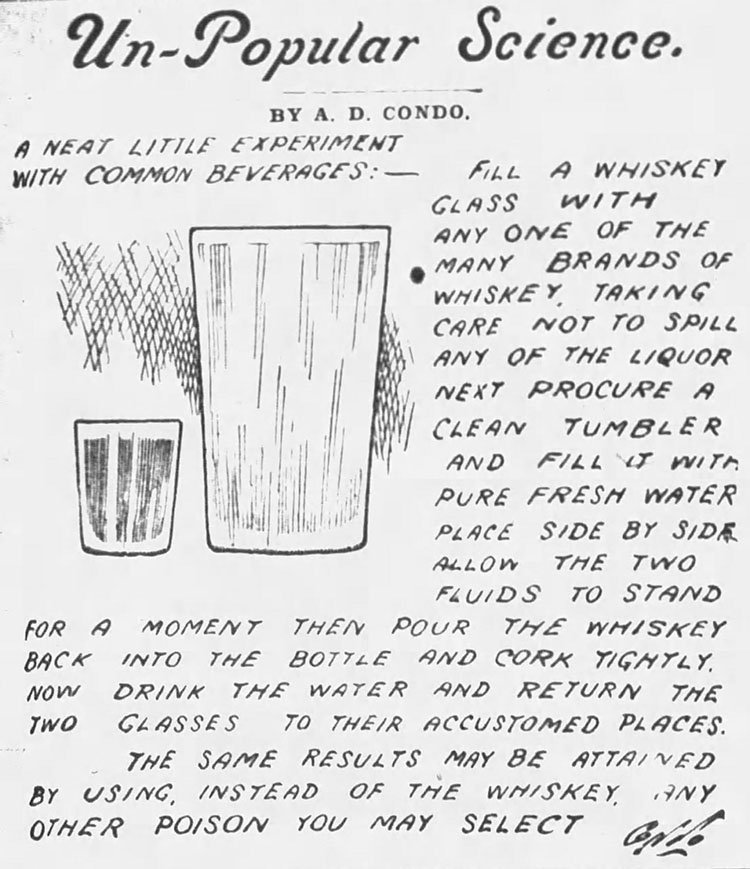 Un-Popular Science.
BY A. D. CONDO.
A NEAT LITTLE EXPERIMENT
WITH COMMON BEVERAGES:—
FILL A WHISKEY
GLASS WITH
ANY ONE OF THE
MANY BRANDS OF
WHISKEY, TAKING
CARE NOT TO SPILL
ANY OF THE LIQUOR
NEXT PROCURE A
CLEAN TUMBLER
AND FILL IT WITH
PURE FRESH WATER
PLACE SIDE BY SIDE
ALLOW THE TWO
FLUIDS TO STAND
FOR A MOMENT THEN POUR THE WHISKEY
BACK INTO THE BOTTLE AND CORK TIGHTLY.
NOW DRINK THE WATER AND RETURN THE
TWO GLASSES TO THEIR ACCUSTOMED PLACES.
THE SAME RESULTS MAY BE ATTAINED
BY USING, INSTEAD OF THE WHISKEY, ANY
OTHER POISON YOU MAY SELECT
Condo